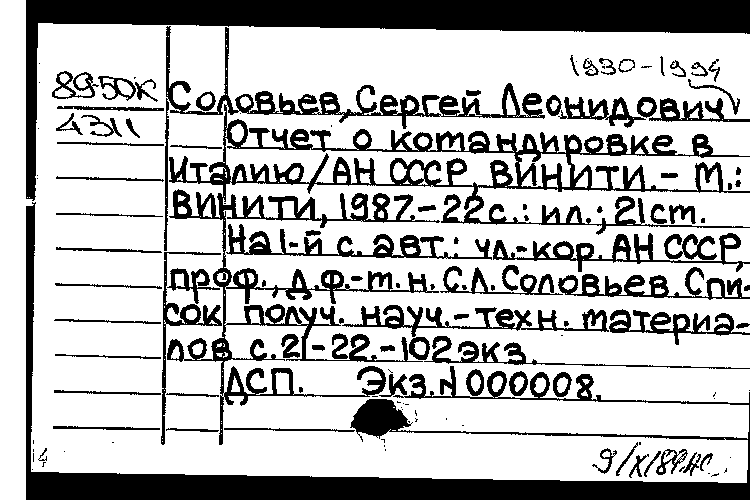 1930-1994
89-50К
4311
Соловьев, Сергей Леонидович
Отчет о командировке в
Италию/АН СССР, ВИНИТИ.- М.:
ВИНИТИ, 1987.-22с.: ил.; 21см.
На 1-й с. авт.: чл.-кор. АН СССР,
проф., д.ф.-м.н. С.Л. Соловьев. Спи-
сок получ. науч.-техн. материа-
лов с.21-22.-102экз.
ДСП. Экз.N000008.
4
9/X/89